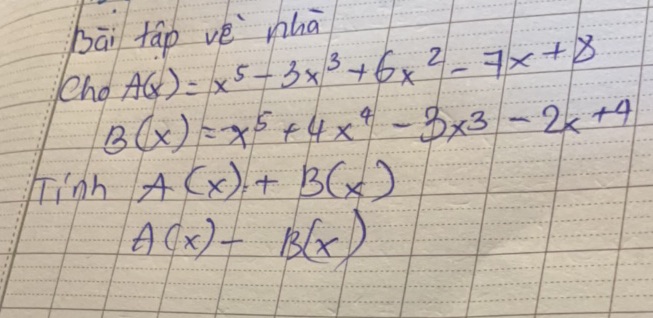 Bài tập về nhà
Cho A(x) = x⁵ - 3x³ + 6x² - 7x + 8
B(x) = x⁵ + 4x⁴ - 3x³ - 2x + 4
Tính A(x) + B(x)
A(x) - B(x)